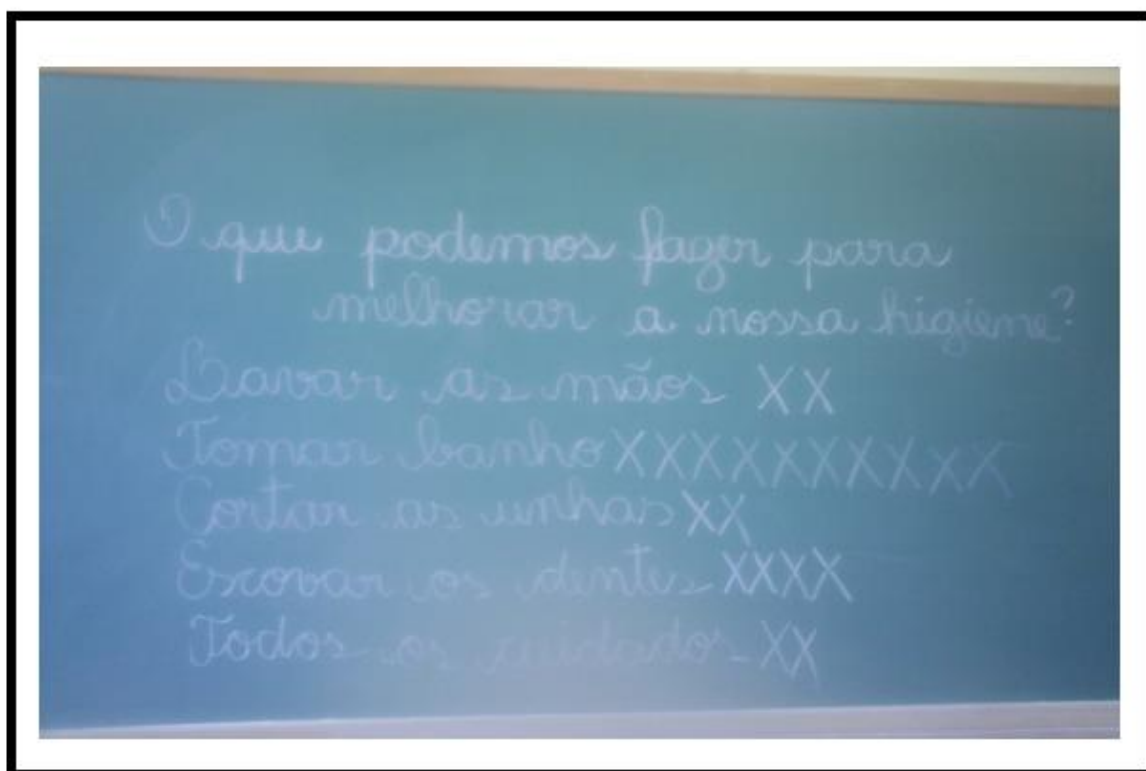 O que podemos fazer para
melhorar a nossa higiene?
Lavar as mãos XX
Tomar banho XXXXXXXXXX
Cortar as unhas XX
Escovar os dentes XXXX
Todos os cuidados XX